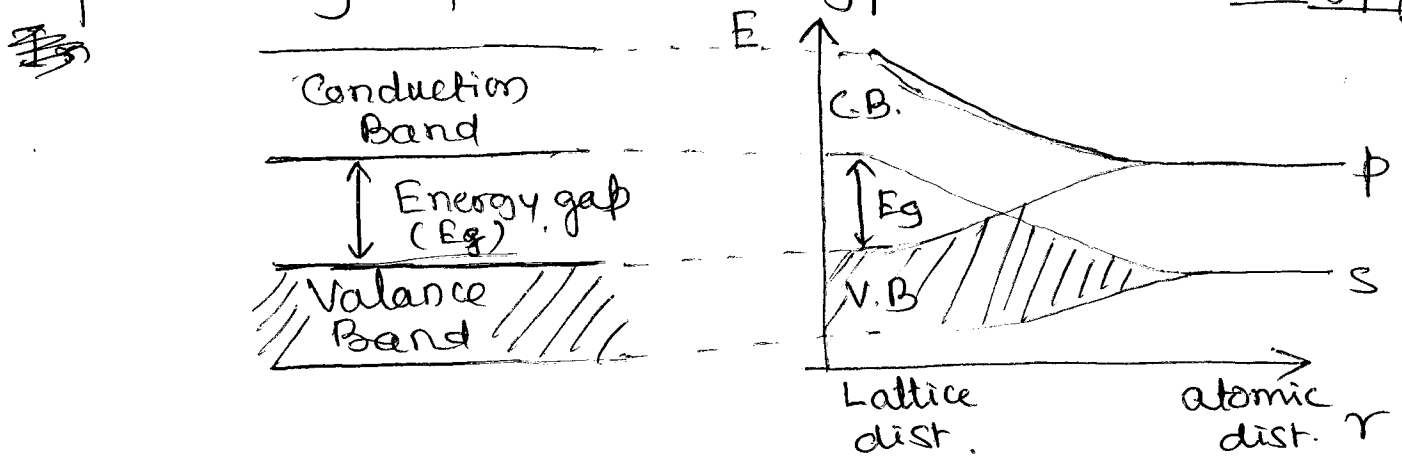 E
Conduction
Band
C.B.
p
Energy gap
(Eg)
Eg
Valance
Band
V.B
S
Lattice
dist.
atomic
dist. r